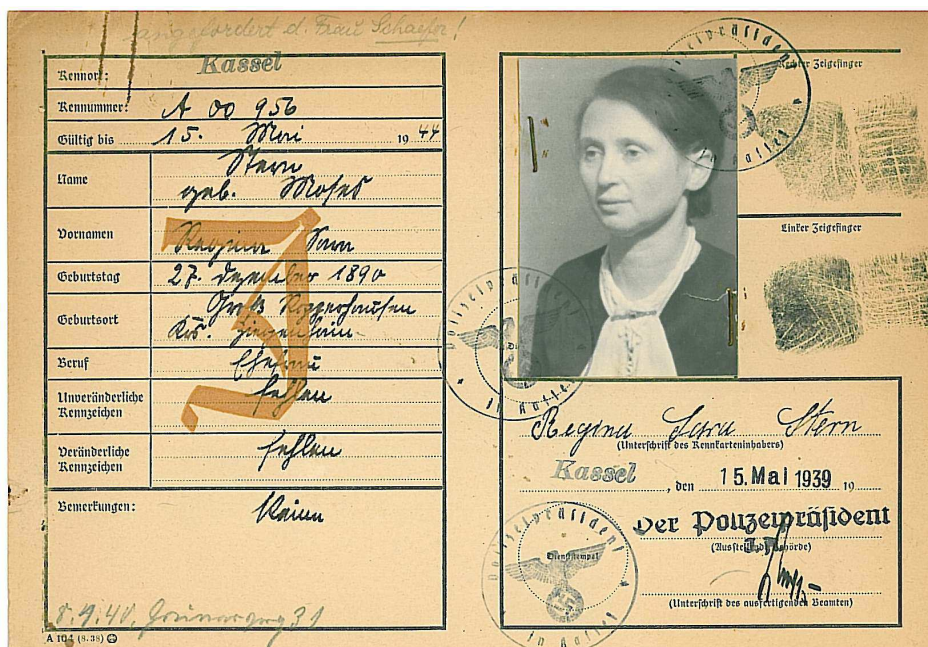 angefordert d. Frau Schaefer!
Kennort: Kassel
Kennummer: A 00 956
Gültig bis 15. Mai 19 44
Name Stern
geb. Moses
Vornamen Regina Sara
Geburtstag 27. Dezember 1890
Geburtsort Groß Ropperhausen
Krs. Ziegenhain
Beruf Ehefrau
Unveränderliche
Kennzeichen fehlen
Veränderliche
Kennzeichen fehlen
Bemerkungen: Keine
J
8.9.40, Grünerweg 31
A 104 (8. 38)
Rechter Zeigefinger
Linker Zeigefinger
Polizeipräsident
in Kassel
Polizeipräsident
in Kassel
Regina Sara Stern
(Unterschrift des Kennkarteninhabers)
Kassel, den 15. Mai 1939 19
Der Polizeipräsident
(Ausstellende Behörde)
(Unterschrift des ausfertigenden Beamten)
Polizeipräsident
Dienststempel
in Kassel